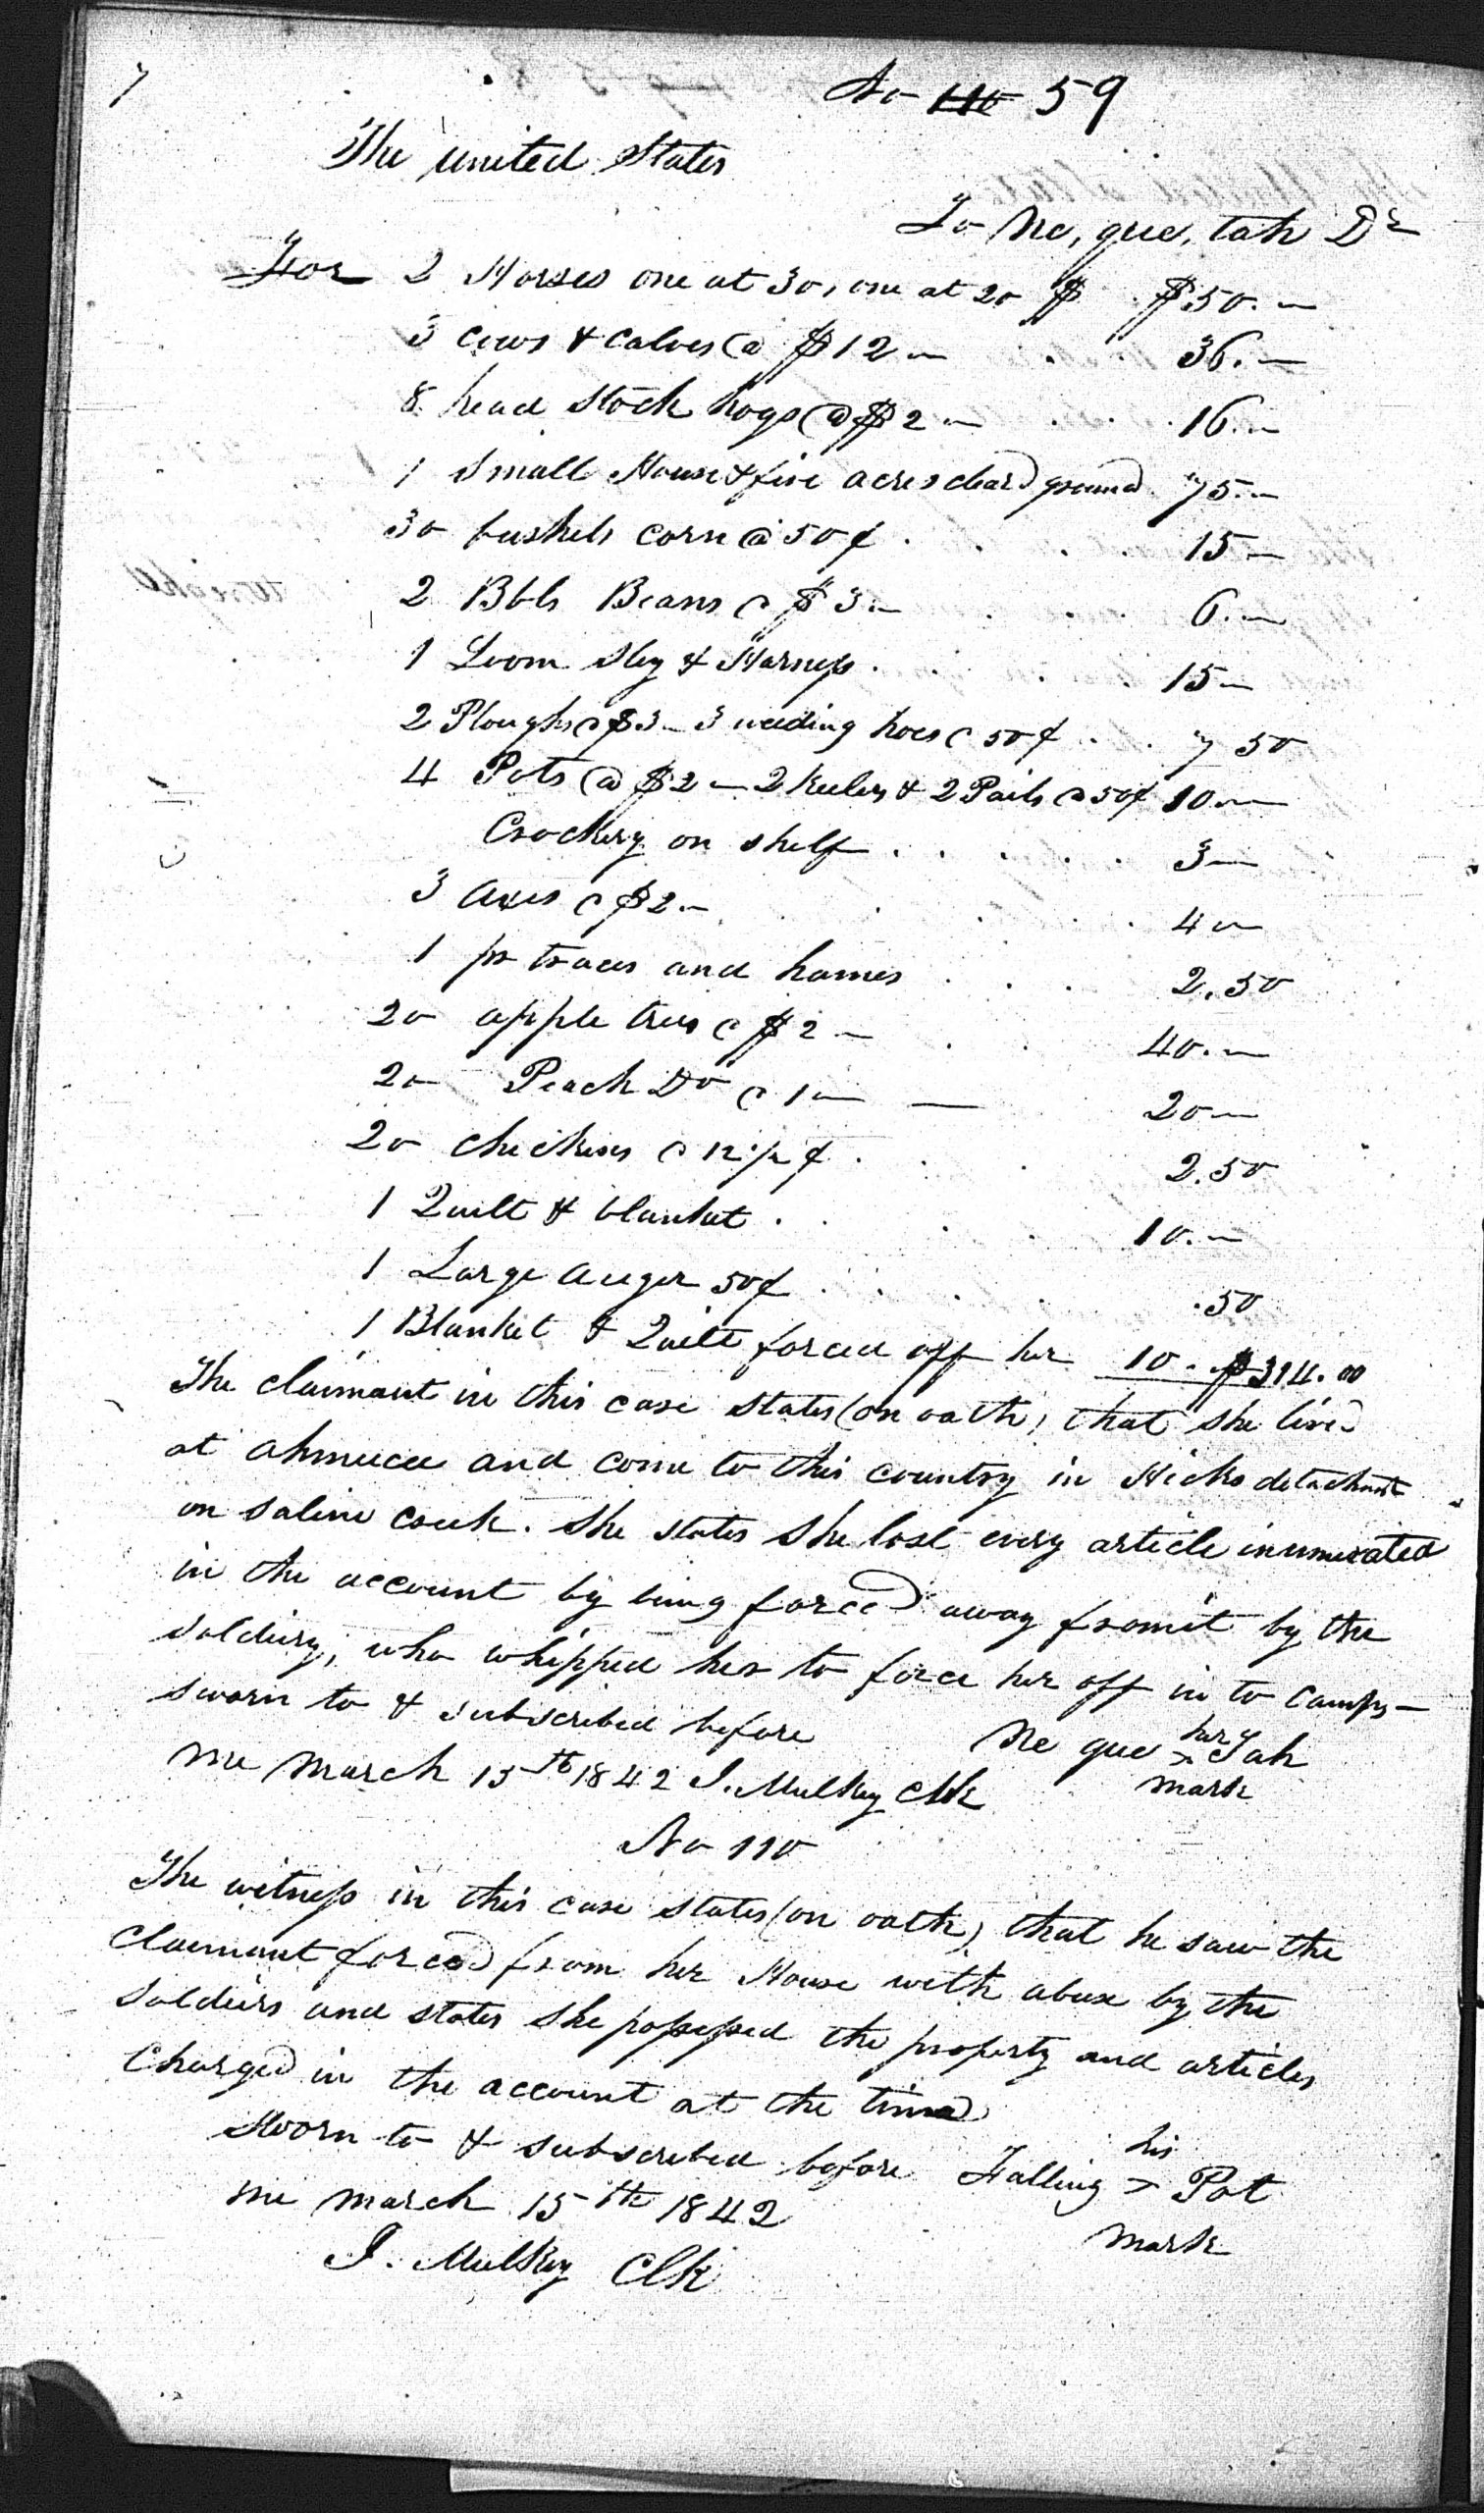 No 110 59
The united States
To Ne, que, tah Dr
For 2 Horses one at 30, one at 20 $ $50.—
3 cows & calves @ $12— . . 36.—
8 head stock hogs @ $2— . . . 16.—
1 Small House & five acres cleard ground 75.—
30 bushels corn @ 50¢ . . . . 15—
2 Bbls Beans @ $3.— . . . 6.—
1 Loom Sley & Harness . . . . 15—
2 Ploughs @ $3— 3 weeding hoes @ 50¢ . . 7 50
4 Pots @ $2— 2 Keelers & 2 Pails @ 50¢ 10.—
Crockery on shelf . . . . . 3—
3 axes @ $2.— . . . . 4 —
1 pr traces and hames . . . 2.50
20 apple trees @ $2— . . 40.—
20 Peach Do @ 1— — 20—
20 chickens @ 12 1/2 ¢ . . . 2.50
1 Quilt & blanket . . . . 10.—
1 Large auger 50¢ . . . . .50
1 Blanket & Quilt forced off her 10. $314.00
The claimant in this case States (on oath) that she lived
at ahmucee and come to this country in Hicks detachmt
on saline creek. She states She lost every article inumerated
in the account by being forced away from it by the
soldiery, who whipped her to force her off in to camps—
sworn to & subscribed before Ne que her x Tah
me March 15th 1842 J. Mulkey Clk mark
No 110
The witness in this case states (on oath) that he saw the
claimant forced from her House with abuse by the
soldiers and states She possessed the property and articles
Charged in the account at the time
Sworn to & subscribed before Falling his x Pot
me March 15th 1842 mark
J. Mulkey Clk